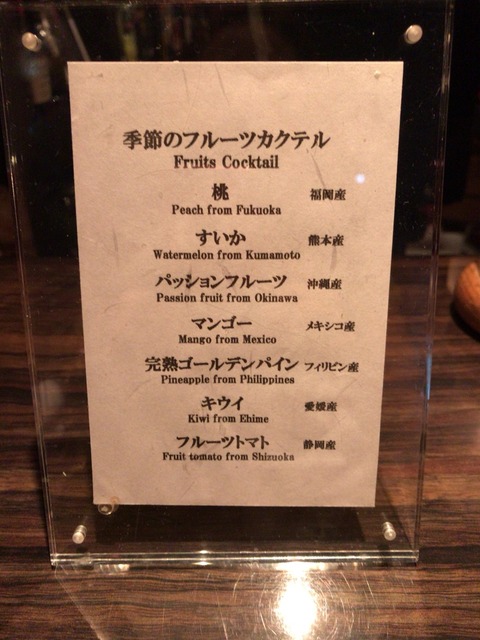 季節のフルーツカクテル
Fruits Cocktail
桃 福岡産
Peach from Fukuoka
すいか 熊本産
Watermelon from Kumamoto
パッションフルーツ 沖縄産
Passion fruit from Okinawa
マンゴー メキシコ産
Mango from Mexico
完熟ゴールデンパイン フィリピン産
Pineapple from Philippines
キウイ 愛媛産
Kiwi from Ehime
フルーツトマト 静岡産
Fruit tomato from Shizuoka